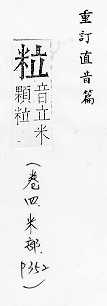 重訂直音篇
粒
音立米
顆粒
(卷四.米部.
P352)